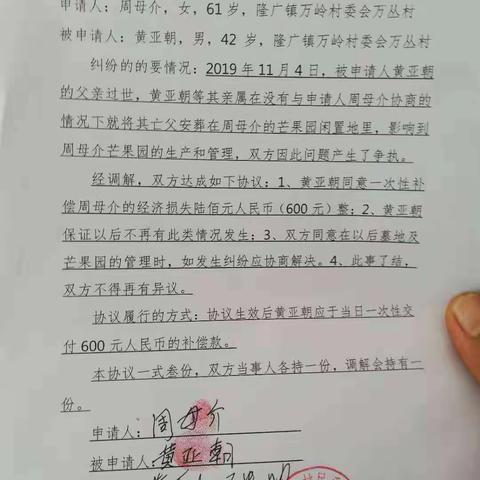 申请人：周母介，女，61岁，隆广镇万岭村委会万丛村
被申请人：黄亚朝，男，42岁，隆广镇万岭村委会万丛村
纠纷的的要情况：2019年11月4日，被申请人黄亚朝
的父亲过世，黄亚朝等其亲属在没有与申请人周母介协商的
情况下就将其亡父安葬在周母介的芒果园闲置地里，影响到
周母介芒果园的生产和管理，双方因此问题产生了争执。
经调解，双方达成如下协议：1、黄亚朝同意一次性补
偿周母介的经济损失陆佰元人民币（600元）整；2、黄亚朝
保证以后不再有此类情况发生；3、双方同意在以后墓地及
芒果园的管理时，如发生纠纷应协商解决。4、此事了结，
双方不得再有异议。
协议履行的方式：协议生效后黄亚朝应于当日一次性交
付600元人民币的补偿款。
本协议一式叁份，双方当事人各持一份，调解会持有一
份。
申请人：周母介
被申请人：黄亚朝